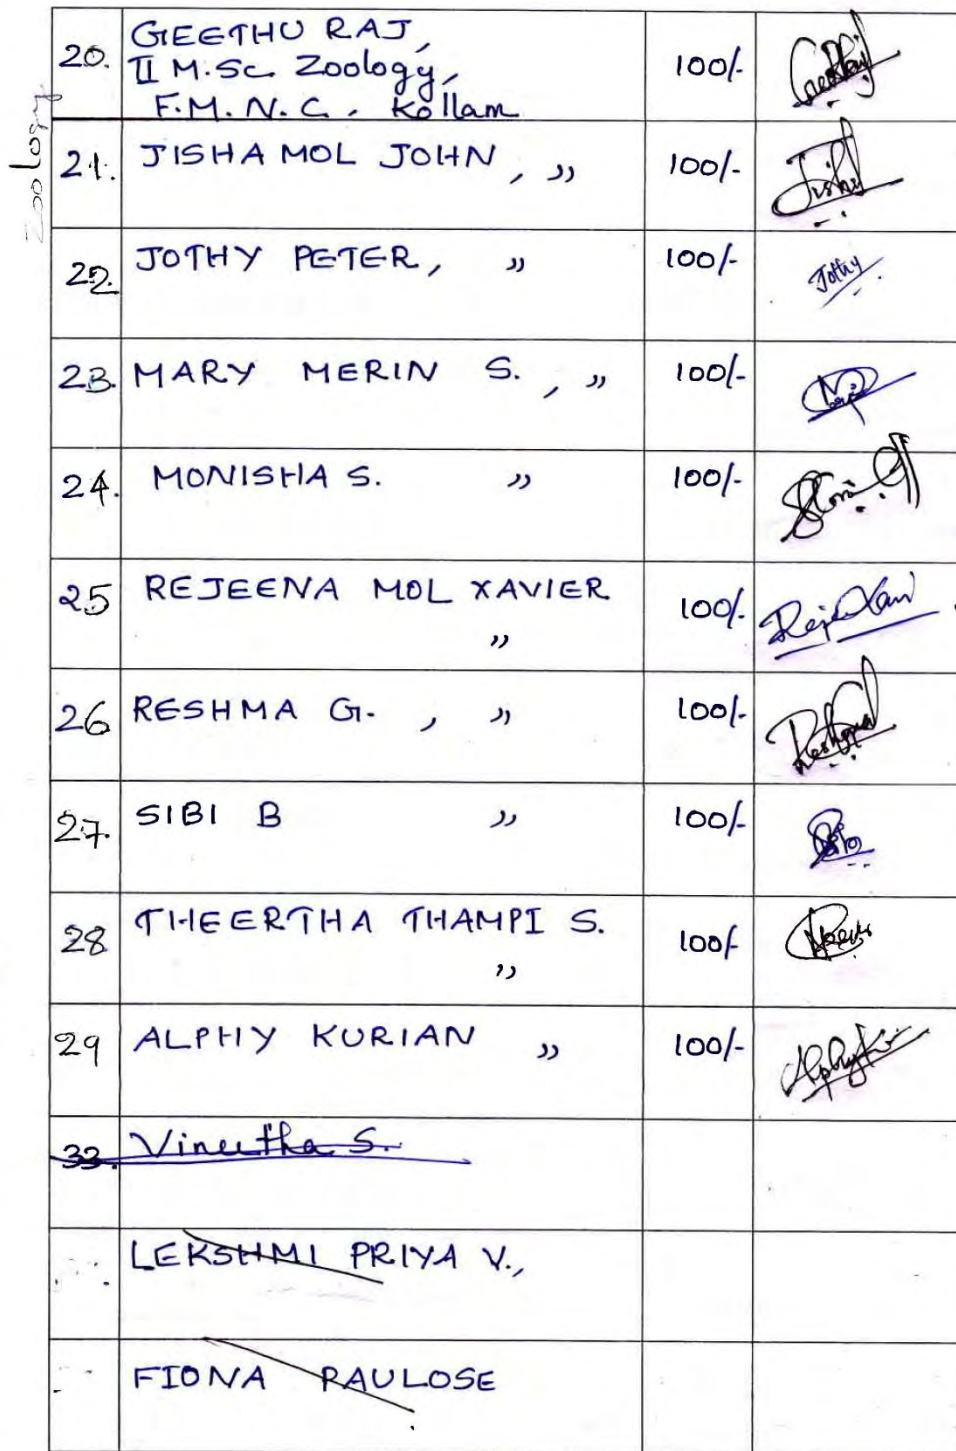 Zoology
20. GEETHU RAJ, 100/-
II M.Sc. Zoology,
F.M.N.C., Kollam
21. JISHA MOL JOHN, ,, 100/- Jisha
22. JOTHY PETER, ,, 100/- Jothy
23. MARY MERIN S., ,, 100/-
24. MONISHA S. ,, 100/-
25 REJEENA MOL XAVIER 100/-
,,
26 RESHMA G., ,, 100/-
27. SIBI B ,, 100/-
28 THEERTHA THAMPI S. 100/-
,,
29 ALPHY KURIAN ,, 100/-
33. Vineetha S.
LEKSHMI PRIYA V.,
FIONA PAULOSE